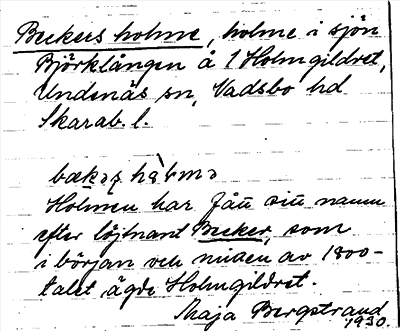 Beckers holme, holme i sjön
Björklången å 1 Holmgildret,
Undenäs sn, Vadsbo hd
Skarab. l.
Holmen har fått sitt namn
efter löjtnant Becker, som
i början och midten av 1800-
talet ägde Holmgildret.
Maja Bergstrand
1930.